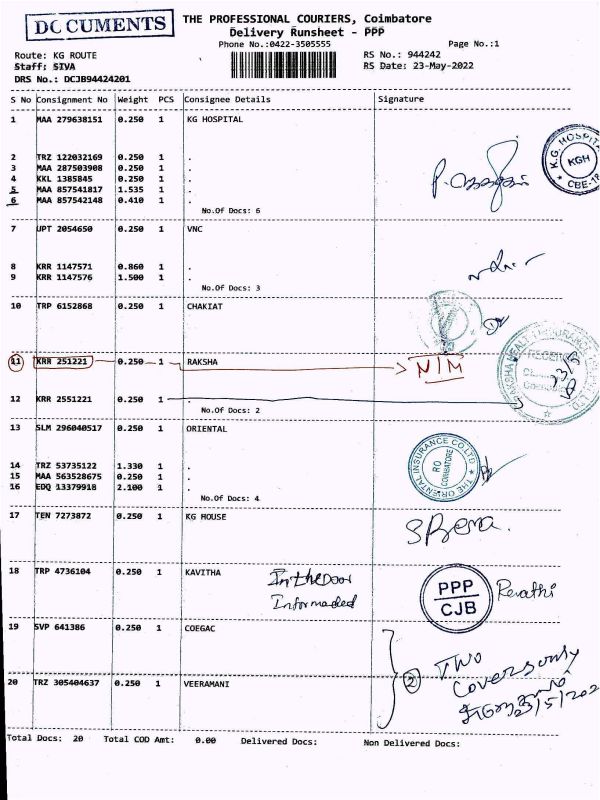 DOCUMENTS
THE PROFESSIONAL COURIERS, Coimbatore
Delivery Runsheet - PPP
Phone No.:0422-3505555
Page No.:1
Route: KG ROUTE
RS No.: 944242
Staff: SIVA
RS Date: 23-May-2022
DRS No.: DCJB94424201
S No Consignment No Weight PCS Consignee Details Signature
1 MAA 279638151 0.250 1 KG HOSPITAL
K.G. HOSPITAL KGH CBE-18
2 TRZ 122032169 0.250 1 .
3 MAA 287503908 0.250 1 .
4 KKL 1385845 0.250 1 .
5 MAA 857541817 1.535 1 .
6 MAA 857542148 0.410 1 .
No.Of Docs: 6
7 UPT 2054650 0.250 1 VNC
8 KRR 1147571 0.860 1 .
9 KRR 1147576 1.500 1 .
No.Of Docs: 3
10 TRP 6152868 0.250 1 CHAKIAT
11 KRR 251221 0.250 1 RAKSHA N/M
12 KRR 2551221 0.250 1 .
No.Of Docs: 2
13 SLM 296040517 0.250 1 ORIENTAL
THE ORIENTAL INSURANCE CO LTD RO COIMBATORE
14 TRZ 53735122 1.330 1 .
15 MAA 563528675 0.250 1 .
16 EDQ 13379918 2.100 1 .
No.Of Docs: 4
17 TEN 7273872 0.250 1 KG HOUSE
18 TRP 4736104 0.250 1 KAVITHA
In the Door
Informaded
PPP
CJB
Revathi
19 SVP 641386 0.250 1 COEGAC
2 Two
Covers only
23/5/202
20 TRZ 305404637 0.250 1 VEERAMANI
Total Docs: 20 Total COD Amt: 0.00 Delivered Docs: Non Delivered Docs: